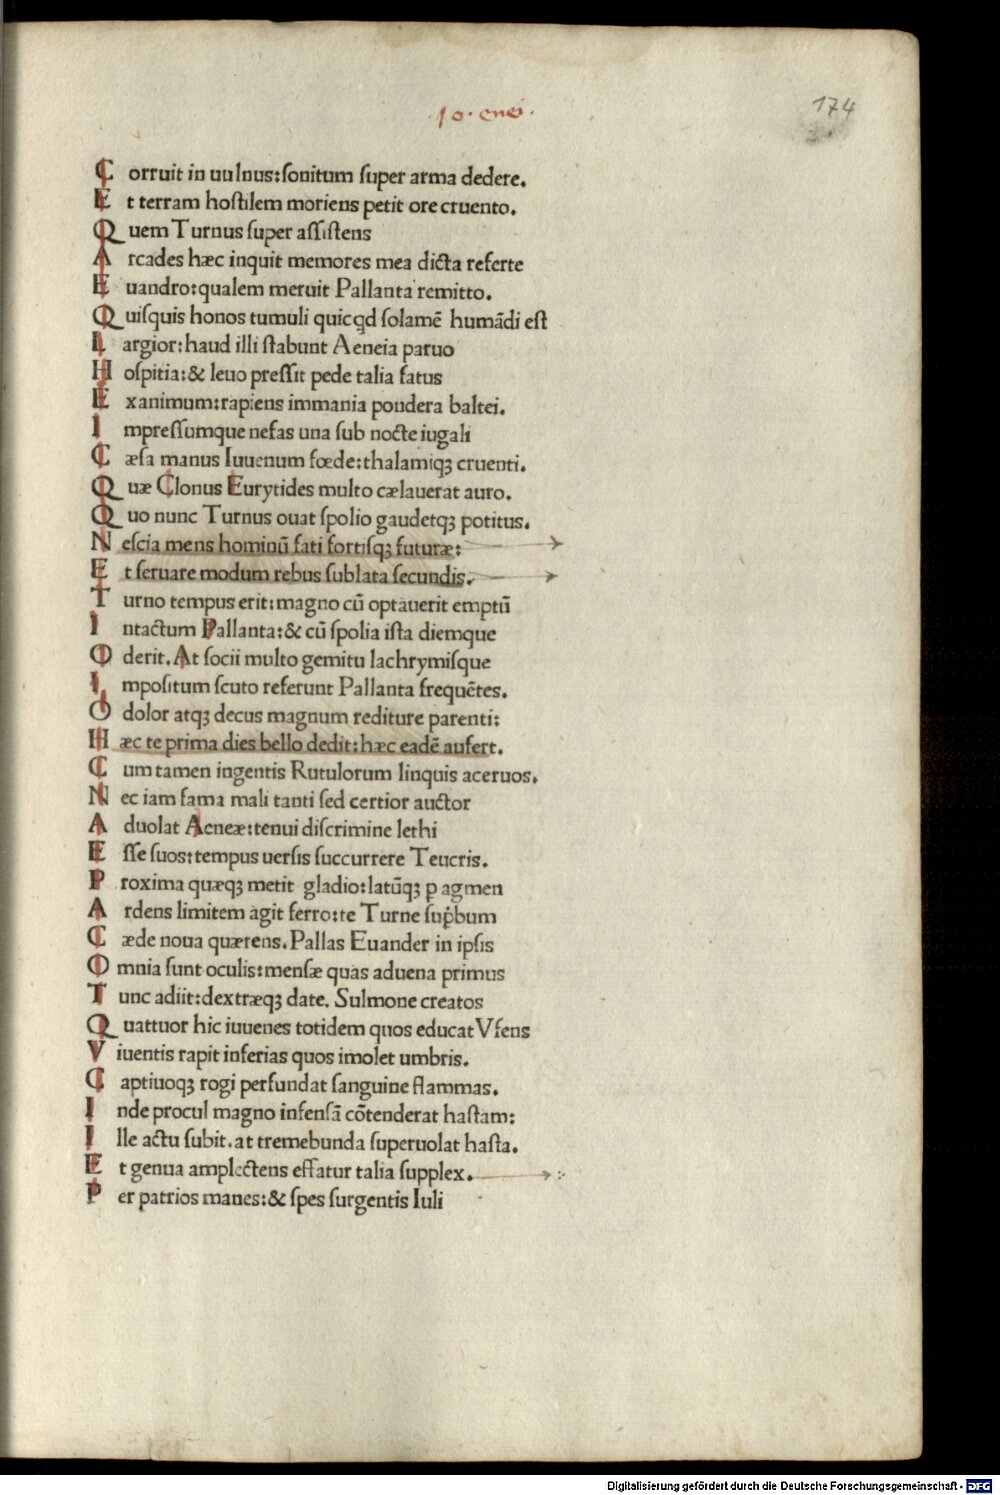 ·10· enei·
174
C orruit in uulnus:ſonitum ſuper arma dedere.
E t terram hoſtilem moriens petit ore cruento.
Q uem Turnus ſuper aſſiſtens
A rcades hæc inquit memores mea dicta referte
E uandro:qualem meruit Pallanta remitto.
Q uiſquis honos tumuli quicqd ſolamē humādi eſt
L argior:haud illi ſtabunt Aeneia paruo
H oſpitia:& leuo preſſit pede talia fatus
E xanimum:rapiens immania pondera baltei.
I mpreſſumque nefas una ſub nocte iugali
C æſa manus Iuuenum fœde:thalamiqꝫ cruenti.
Q uæ Clonus Eurytides multo cælauerat auro.
Q uo nunc Turnus ouat ſpolio gaudetqꝫ potitus.
N eſcia mens hominū fati fortiſqꝫ futuræ:
E t ſeruare modum rebus ſublata ſecundis.
T urno tempus erit:magno cū optauerit emptū
I ntactum Pallanta:& cū ſpolia iſta diemque
O derit.At ſocii multo gemitu lachrymiſque
I mpoſitum ſcuto referunt Pallanta frequētes.
O dolor atqꝫ decus magnum rediture parenti:
H æc te prima dies bello dedit:hæc eadē aufert.
C um tamen ingentis Rutulorum linquis aceruos.
N ec iam fama mali tanti ſed certior auctor
A duolat Aeneæ:tenui diſcrimine lethi
E ſſe ſuos:tempus uerſis ſuccurrere Teucris.
P roxima quæqꝫ metit gladio:latūqꝫ ꝑ agmen
A rdens limitem agit ferro:te Turne ſuꝑbum
C æde noua quærens.Pallas Euander in ipſis
O mnia ſunt oculis:menſæ quas aduena primus
T unc adiit:dextræqꝫ date. Sulmone creatos
Q uattuor hic iuuenes totidem quos educat Vfens
V iuentis rapit inferias quos imolet umbris.
C aptiuoqꝫ rogi perfundat ſanguine flammas.
I nde procul magno infenſā cōtenderat haſtam:
I lle actu ſubit.at tremebunda ſuperuolat haſta.
E t genua amplectens effatur talia ſupplex.
P er patrios manes:& ſpes ſurgentis Iuli
Digitalisierung gefördert durch die Deutsche Forschungsgemeinschaft - DFG